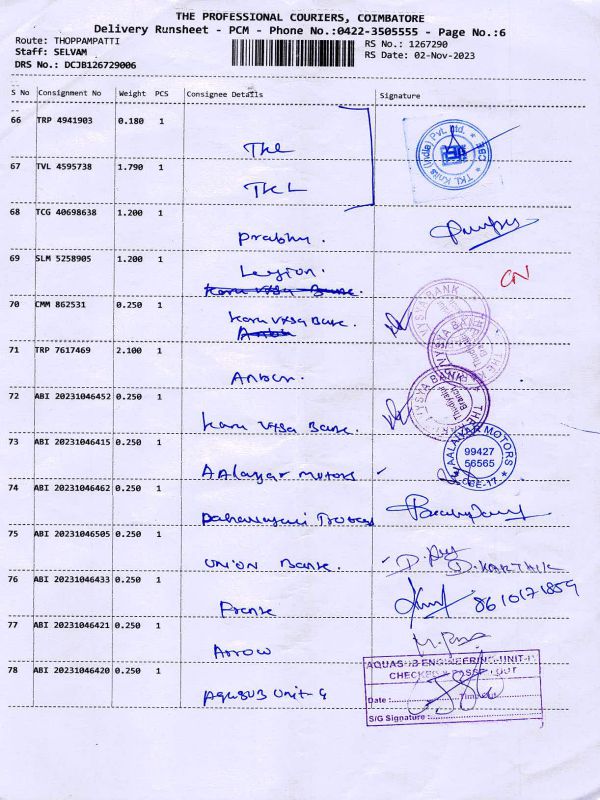 THE PROFESSIONAL COURIERS, COIMBATORE
Delivery Runsheet - PCM - Phone No.:0422-3505555 - Page No.:6
Route: THOPPAMPATTI RS No.: 1267290
Staff: SELVAM RS Date: 02-Nov-2023
DRS No.: DCJB126729006
S No Consignment No Weight PCS Consignee Details Signature
66 TRP 4941903 0.180 1
TKL
67 TVL 4595738 1.790 1
TKL
TKL Knits (India) Pvt. Ltd. * CBE *
68 TCG 40698638 1.200 1
Prabhu.
69 SLM 5258905 1.200 1
Legion. CN
Karu Vysa Bank.
70 CMM 862531 0.250 1
Karu Vysa Bank.
Anbu
VYSYA BANK
71 TRP 7617469 2.100 1
Anbur.
72 ABI 20231046452 0.250 1
Karu Vysa Bank.
VYSYA BANK
73 ABI 20231046415 0.250 1
AAlayar motors
AALAIYAR MOTORS
99427
56565
CBE-17
74 ABI 20231046462 0.250 1
75 ABI 20231046505 0.250 1
UNION Bank. D. KARTHIK
76 ABI 20231046433 0.250 1
8610171859
77 ABI 20231046421 0.250 1
Arrow
78 ABI 20231046420 0.250 1
Aquasub Unit-4
AQUASUB ENGINEERING-UNIT-IV
CHECKED & PASSED OUT
Date : Time
S/G Signature :